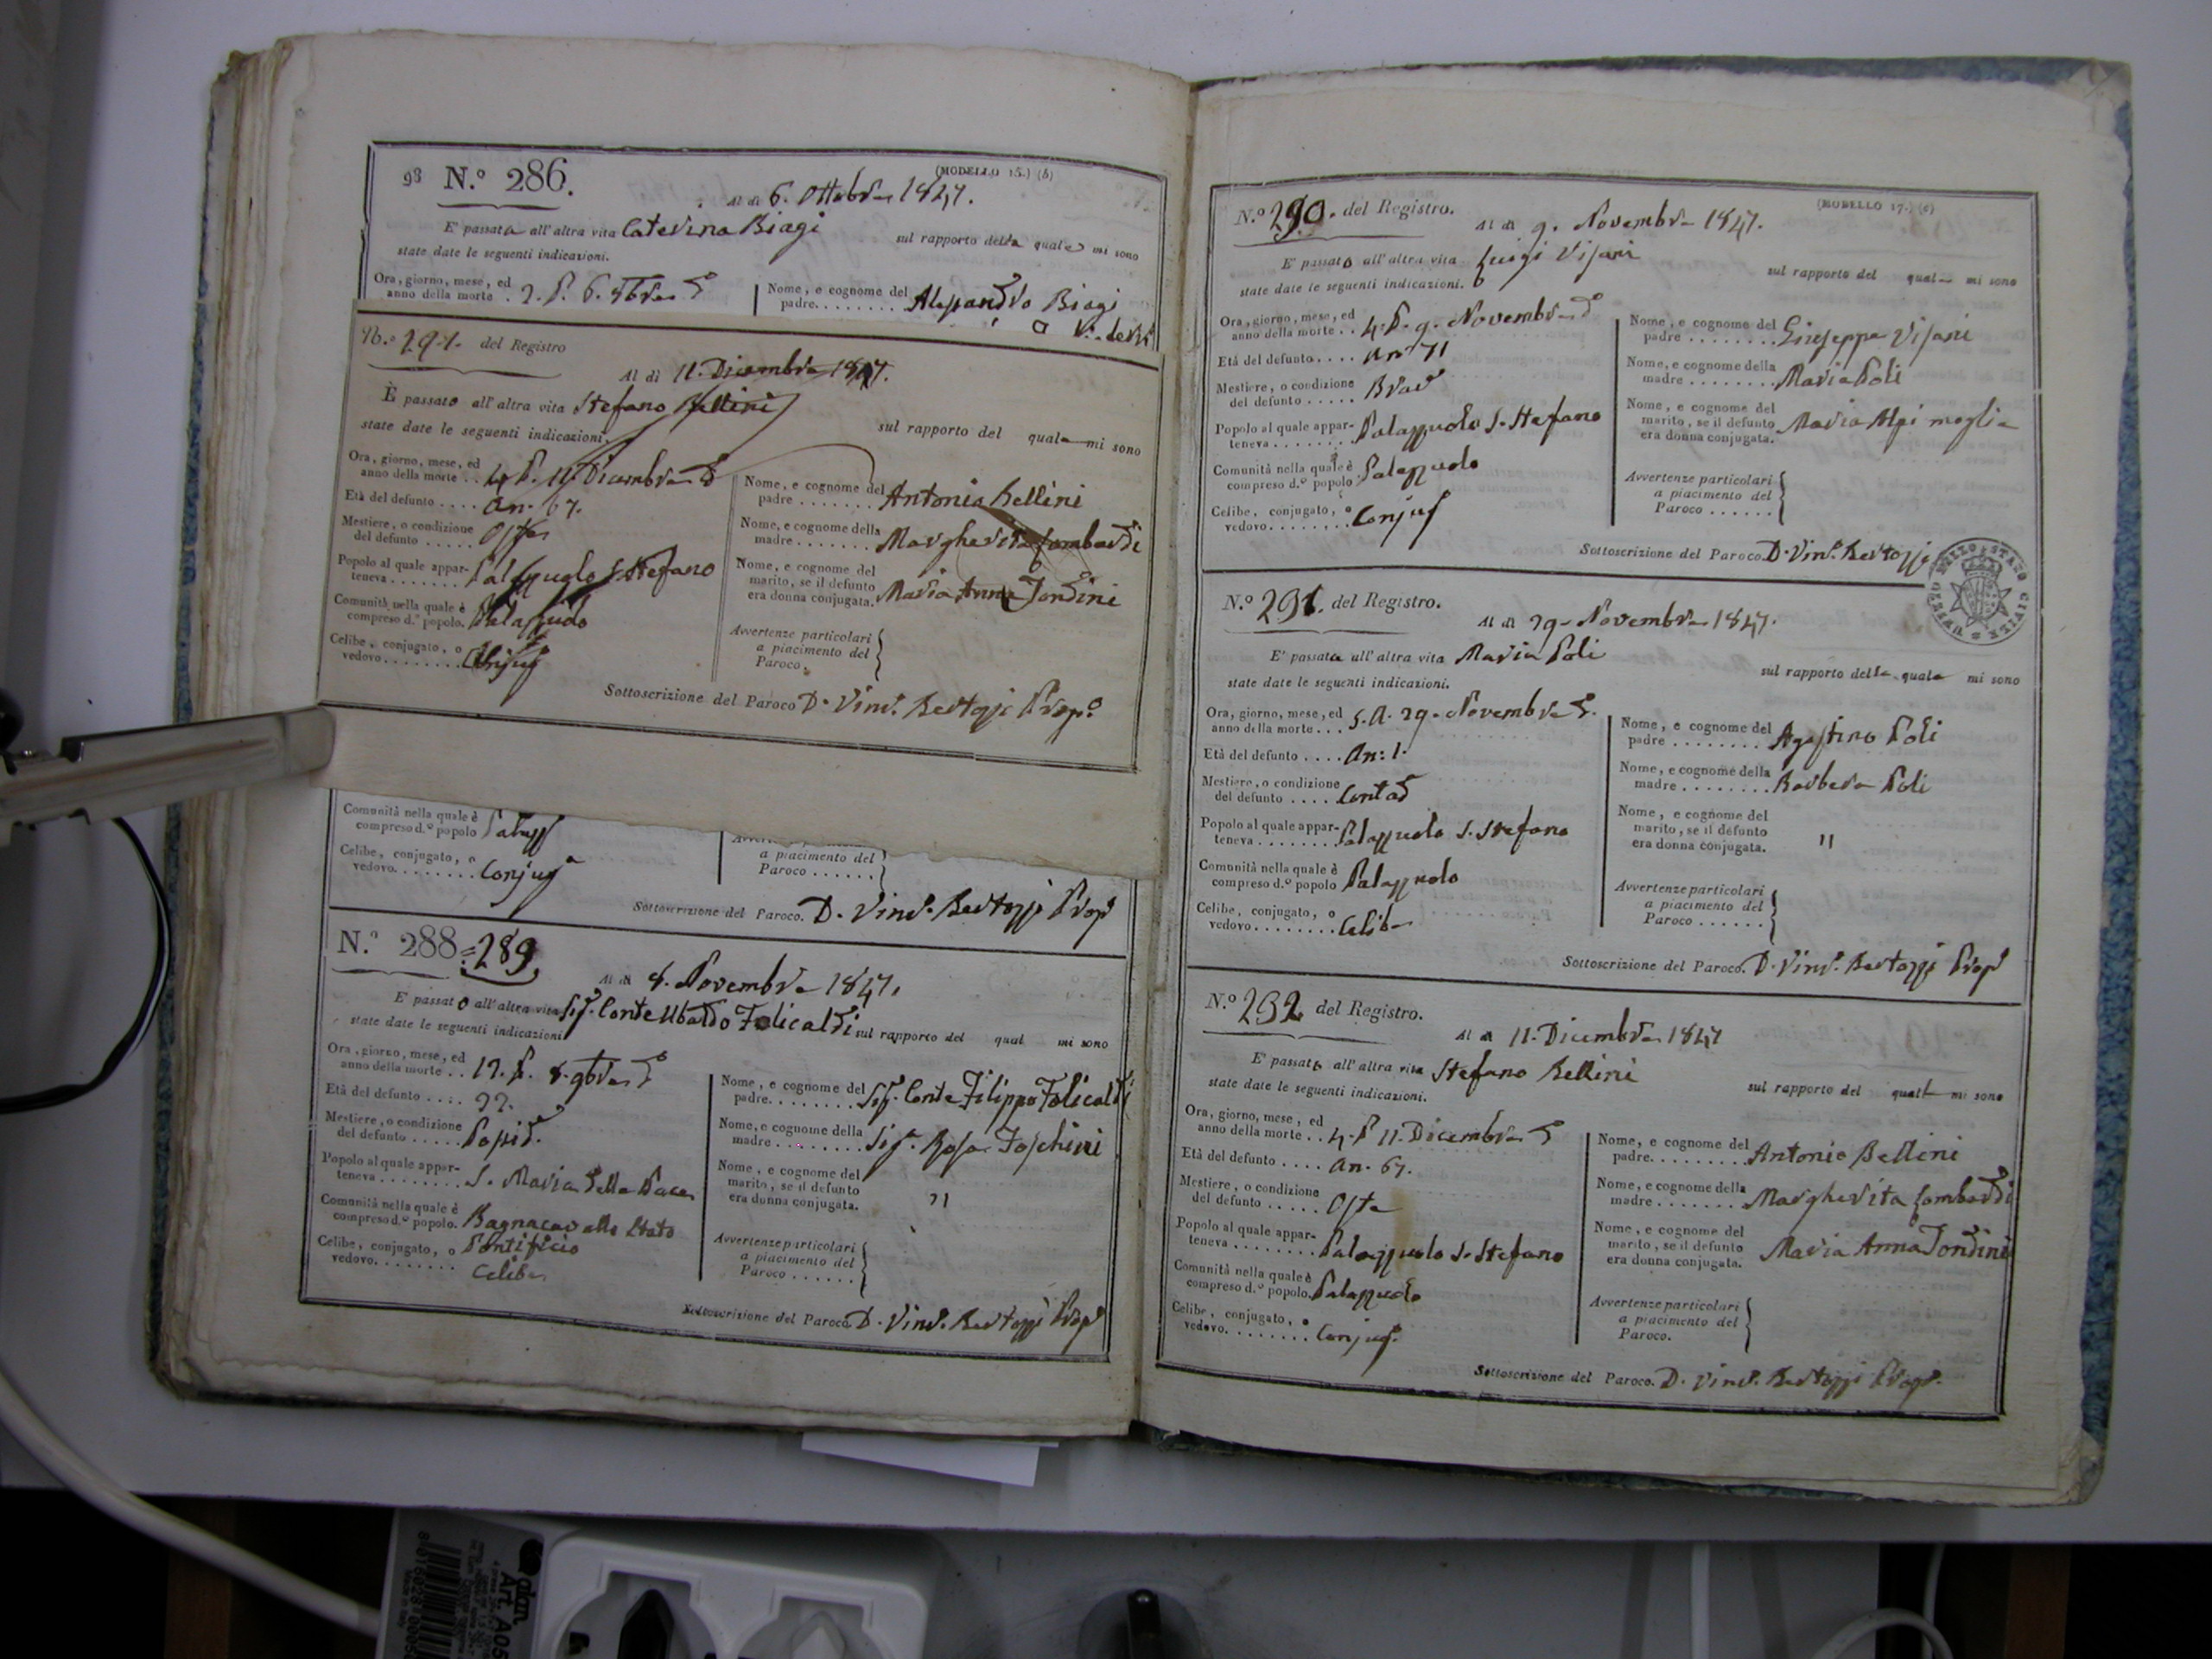 98 N.º 286.
(MODELLO 15.) (b)
Al dì 6. Ottobre 1847.
E' passata all'altra vita Caterina Biagi
sul rapporto della quale mi sono
state date le seguenti indicazioni.
Ora, giorno, mese, ed
anno della morte . 2. P. 6. 8bre d.º
Nome, e cognome del
padre........ Alessandro Biagi
N.º 291. del Registro
Al dì 11. Dicembre 1847.
È passato all'altra vita Stefano Bellini
sul rapporto del quale mi sono
state date le seguenti indicazioni.
Ora, giorno, mese, ed
anno della morte .. 4. P. 11. Dicembre d.º
Età del defunto .... An. 67.
Mestiere, o condizione
del defunto ..... Oste
Popolo al quale appar-
teneva....... Palazzuolo S. Stefano
Comunità nella quale è
compreso d.º popolo. Palazzuolo
Celibe, conjugato, o
vedovo........ Conjug
Nome, e cognome del
padre ....... Antonio Bellini
Nome, e cognome della
madre ....... Margherita Lombardi
Nome, e cognome del
marito, se il defunto
era donna conjugata. Maria Anna Tondini
Avvertenze particolari
a piacimento del
Paroco.
Sottoscrizione del Paroco D. Vinc. Bertozzi Prop.º
Comunità nella quale è
compreso d.º popolo Palazz
Celibe, conjugato, o
vedovo........ Conjug
a piacimento del
Paroco ......
Sottoscrizione del Paroco. D. Vinc. Bertozzi Prop
N.º 288=289
Al dì 8. Novembre 1847.
E' passato all'altra vita Sig. Conte Ubaldo Folicaldi sul rapporto del qual mi sono
state date le seguenti indicazioni
Ora, giorno, mese, ed
anno della morte .. 12. P. 8. 9bre d.º
Età del defunto .... 22.
Mestiere, o condizione
del defunto ..... Possid.
Popolo al quale appar-
teneva........ S. Maria della Pace
Comunità nella quale è
compreso d.º popolo. Bagnacavallo Stato
Pontificio
Celibe, conjugato, o
vedovo........ Celibe
Nome, e cognome del
padre........ Sig. Conte Filippo Folicaldi
Nome, e cognome della
madre ....... Sig. Rosa Foschini
Nome, e cognome del
marito, se il defunto
era donna conjugata. "
Avvertenze particolari
a piacimento del
Paroco ......
Sottoscrizione del Paroco D. Vinc. Bertozzi Prop
N.º 290. del Registro.
(MODELLO 17.) (c)
Al dì 9. Novembre 1847.
E' passato all'altra vita Luigi Visani
sul rapporto del quale mi sono
state date le seguenti indicazioni.
Ora, giorno, mese, ed
anno della morte .. 4. P. 9. Novembre d.º
Età del defunto.... An. 71
Mestiere, o condizione
del defunto ..... Brac
Popolo al quale appar-
teneva ....... Palazzuolo S. Stefano
Comunità nella quale è
compreso d.º popolo Palazzuolo
Celibe, conjugato, o
vedovo........ Conjug
Nome, e cognome del
padre ........ Giuseppe Visani
Nome, e cognome della
madre ........ Maria Poli
Nome, e cognome del
marito, se il defunto
era donna conjugata. Maria Alpi moglie
Avvertenze particolari
a piacimento del
Paroco ......
Sottoscrizione del Paroco D. Vinc. Bertozzi
UFFIZIO DELLO STATO CIVILE
N.º 291. del Registro.
Al dì 29. Novembre 1847.
E' passata all'altra vita Maria Poli
sul rapporto della quale mi sono
state date le seguenti indicazioni.
Ora, giorno, mese, ed
anno della morte ... 5. A. 29. Novembre d.
Età del defunto .... An: 1.
Mestiere, o condizione
del defunto ..... Contad
Popolo al quale appar-
teneva ....... Palazzuolo S. Stefano
Comunità nella quale è
compreso d.º popolo Palazzuolo
Celibe, conjugato, o
vedovo........ Celibe
Nome, e cognome del
padre ........ Agostino Poli
Nome, e cognome della
madre ........ Barbera Poli
Nome, e cognome del
marito, se il defunto
era donna conjugata. "
Avvertenze particolari
a piacimento del
Paroco ......
Sottoscrizione del Paroco. D. Vinc. Bertozzi Prop
N.º 292. del Registro.
Al dì 11. Dicembre 1847
E' passato all'altra vita Stefano Bellini
sul rapporto del quale mi sono
state date le seguenti indicazioni.
Ora, giorno, mese, ed
anno della morte .. 4. P 11. Dicembre d.º
Età del defunto .... An. 67.
Mestiere, o condizione
del defunto ..... Oste
Popolo al quale appar-
teneva ........ Palazzuolo S. Stefano
Comunità nella quale è
compreso d.º popolo. Palazzuolo
Celibe, conjugato, o
vedovo........ Conjug.
Nome, e cognome del
padre......... Antonio Bellini
Nome, e cognome della
madre ....... Margherita Lombardi
Nome, e cognome del
marito, se il defunto
era donna conjugata. Maria Anna Tondini
Avvertenze particolari
a piacimento del
Paroco.
Sottoscrizione del Paroco. D. Vinc. Bertozzi Prop.
adam
Art. A05